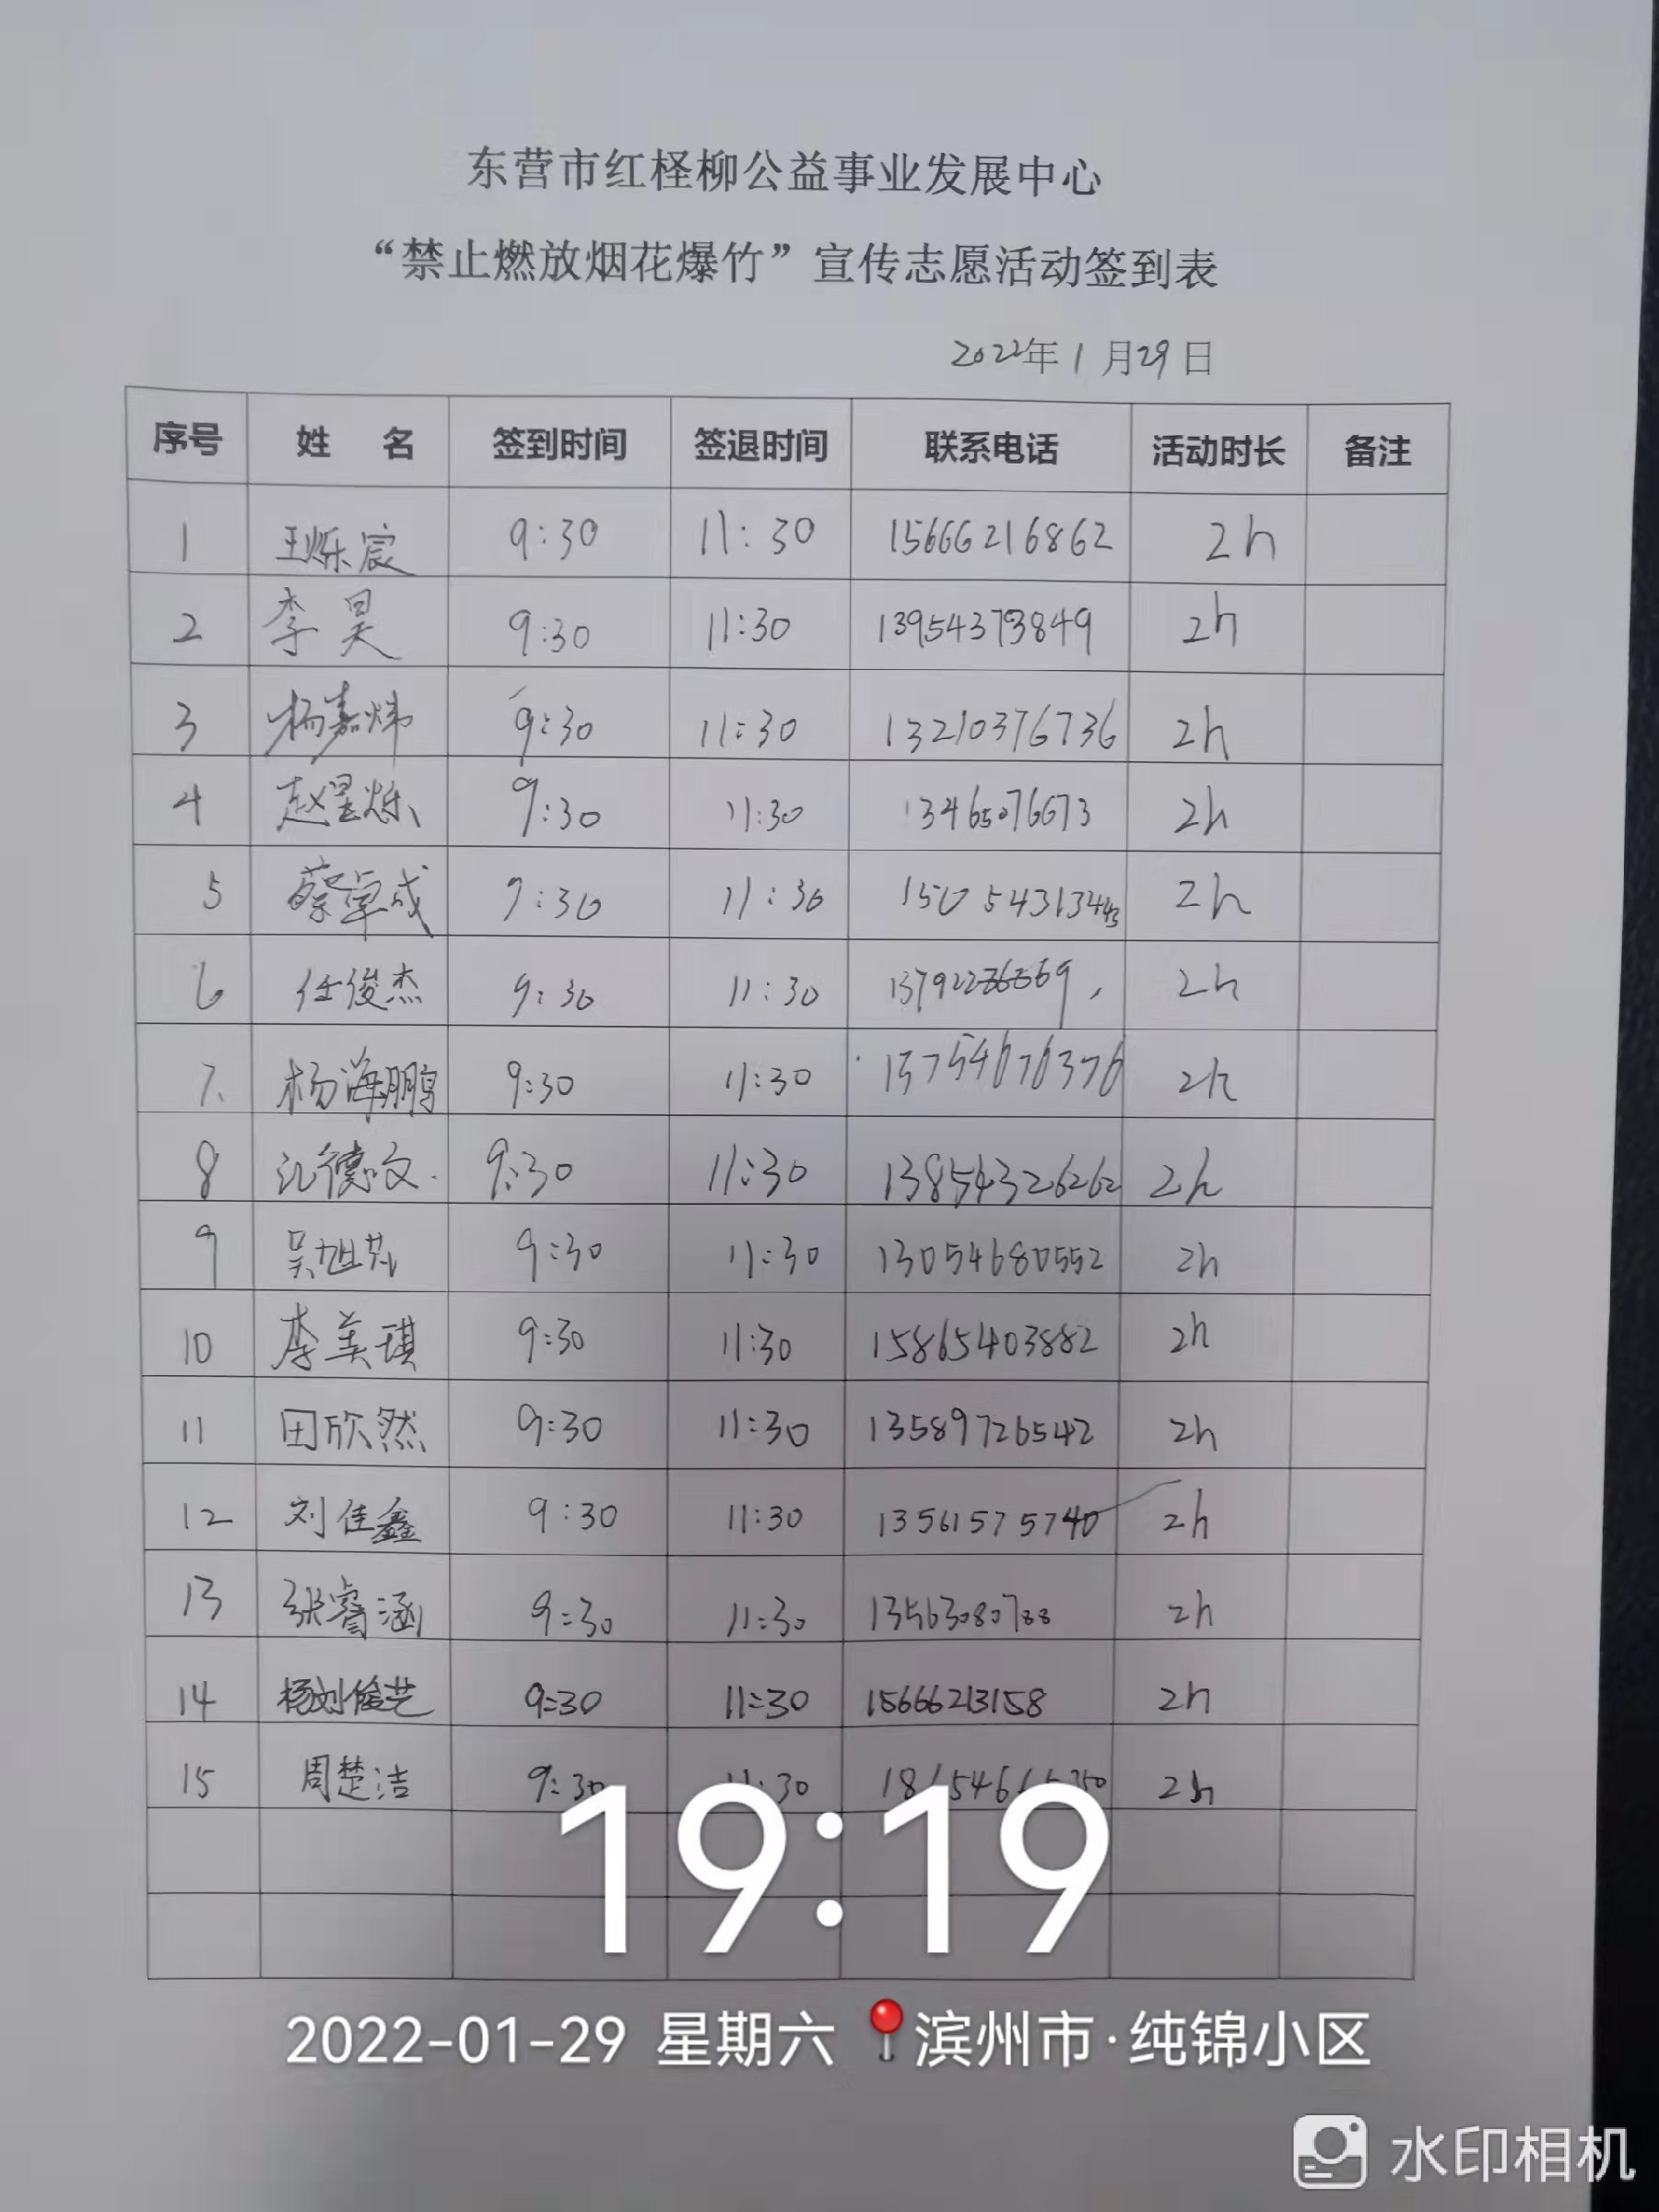 东营市红柽柳公益事业发展中心
“禁止燃放烟花爆竹”宣传志愿活动签到表
2022年1月29日
序号 姓 名 签到时间 签退时间 联系电话 活动时长 备注
1 王烁宸 9:30 11:30 15666216862 2h
2 李昊 9:30 11:30 13954373849 2h
3 杨嘉炜 9:30 11:30 13210376736 2h
4 赵星烁 9:30 11:30 13465076673 2h
5 蔡卓成 9:30 11:30 2h
6 任俊杰 9:30 11:30 2h
7. 杨海鹏 9:30 11:30 15754676376 2h
8 9:30 11:30 13854326262 2h
9 9:30 11:30 13054680552 2h
10 李美琪 9:30 11:30 15865403882 2h
11 田欣然 9:30 11:30 13589726542 2h
12 刘佳鑫 9:30 11:30 13561575740 2h
13 张睿涵 9:30 11:30 13563080788 2h
14 杨刘俊艺 9:30 11:30 15666213158 2h
15 周楚洁 9:30 11:30 2h
19:19
2022-01-29 星期六 滨州市·纯锦小区
水印相机